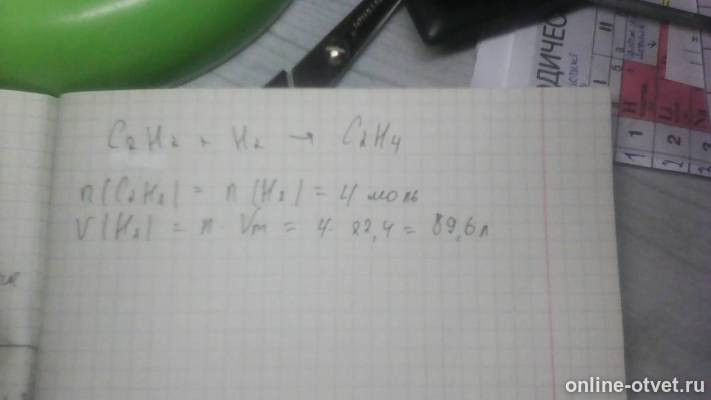 C₂H₂ + H₂ → C₂H₄
n(C₂H₂) = n(H₂) = 4 моль
V(H₂) = n · Vm = 4 · 22,4 = 89,6 л
ОДИЧЕС
online-otvet.ru